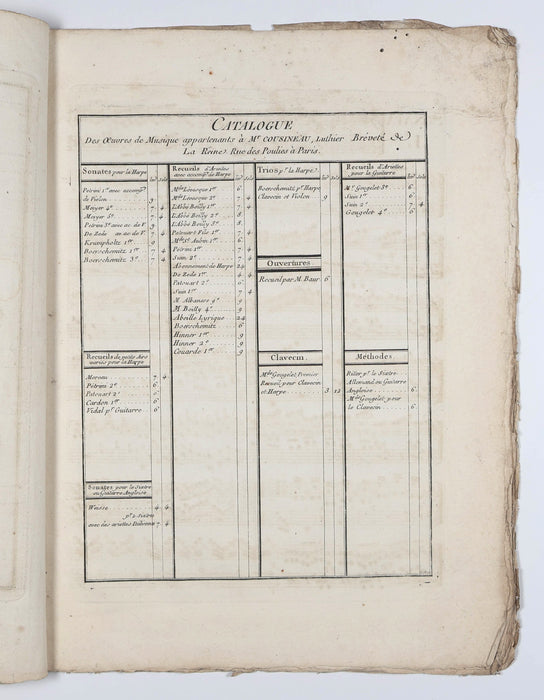 CATALOGUE
Des Œuvres de Musique appartenants à Mr. COUSINEAU, Luthier Bréveté de
La Reine. Rue des Poulies à Paris.
Sonates pour la Harpe
Petrini 1er avec accompt
de Violon 9
Mayer 4e 7 4
Mayer 5e 7 4
Petrini 3e avec ac. de V. 9
De Zede av ac de V. 7 4
Krumpholtz 1er 9
Boerschemitz 1er 7 4
Boerschemitz 3e 7 4
Recueils de petits Airs
variés pour la Harpe
Moreau 7 4
Pétrini 2e 6
Patouart 2e 6
Cardon 1er 6
Vidal pr. Guitarre 6
Sonates pour le Sistre
ou Guitarre Angloise
Weisse 4 4
avec des ariettes Italienes 7 4
Recueils d'Ariettes
avec accompt de Harpe
Mde Levacque 1er 6
Mde Levacque 2e 7 4
L'Abbé Boilly 1er 7 4
L'Abbé Boilly 2e 8
L'Abbé Boilly 3e 8
Patouart Fils 1er 7 4
Mde St. Aubin 1er 6
Petrini 1er 7 4
Suin 2e 7 4
Abonnement de Harpe 24
De Zede 1er 4 4
Patouart 2e 6
Suin 1er 7 4
M. Albanese 9e 9
M. Boilly 4e 9
Abeille Lyrique 24
Boerschemitz 6
Hinner 1er 9
Hinner 2e 9
Couarde 1er 9
Trios pr. la Harpe
Boerschemitz pr. Harpe
Clavecin et Violon 9
Ouvertures
Recueil par M. Baur 6
Clavecin
Mde Gougelet Premier
Recueil pour Clavecin
et Harpe 3 12
Recueils d'Ariettes
pour la Guitarre
Me Gougelet 3e 6
Suin 1er 6
Suin 2e 7 4
Gougelet 4e 6
Méthodes
pr. le Sistre
Allemand ou Guitarre
Angloise 6
Mde Gougelet pour
le Clavecin 6